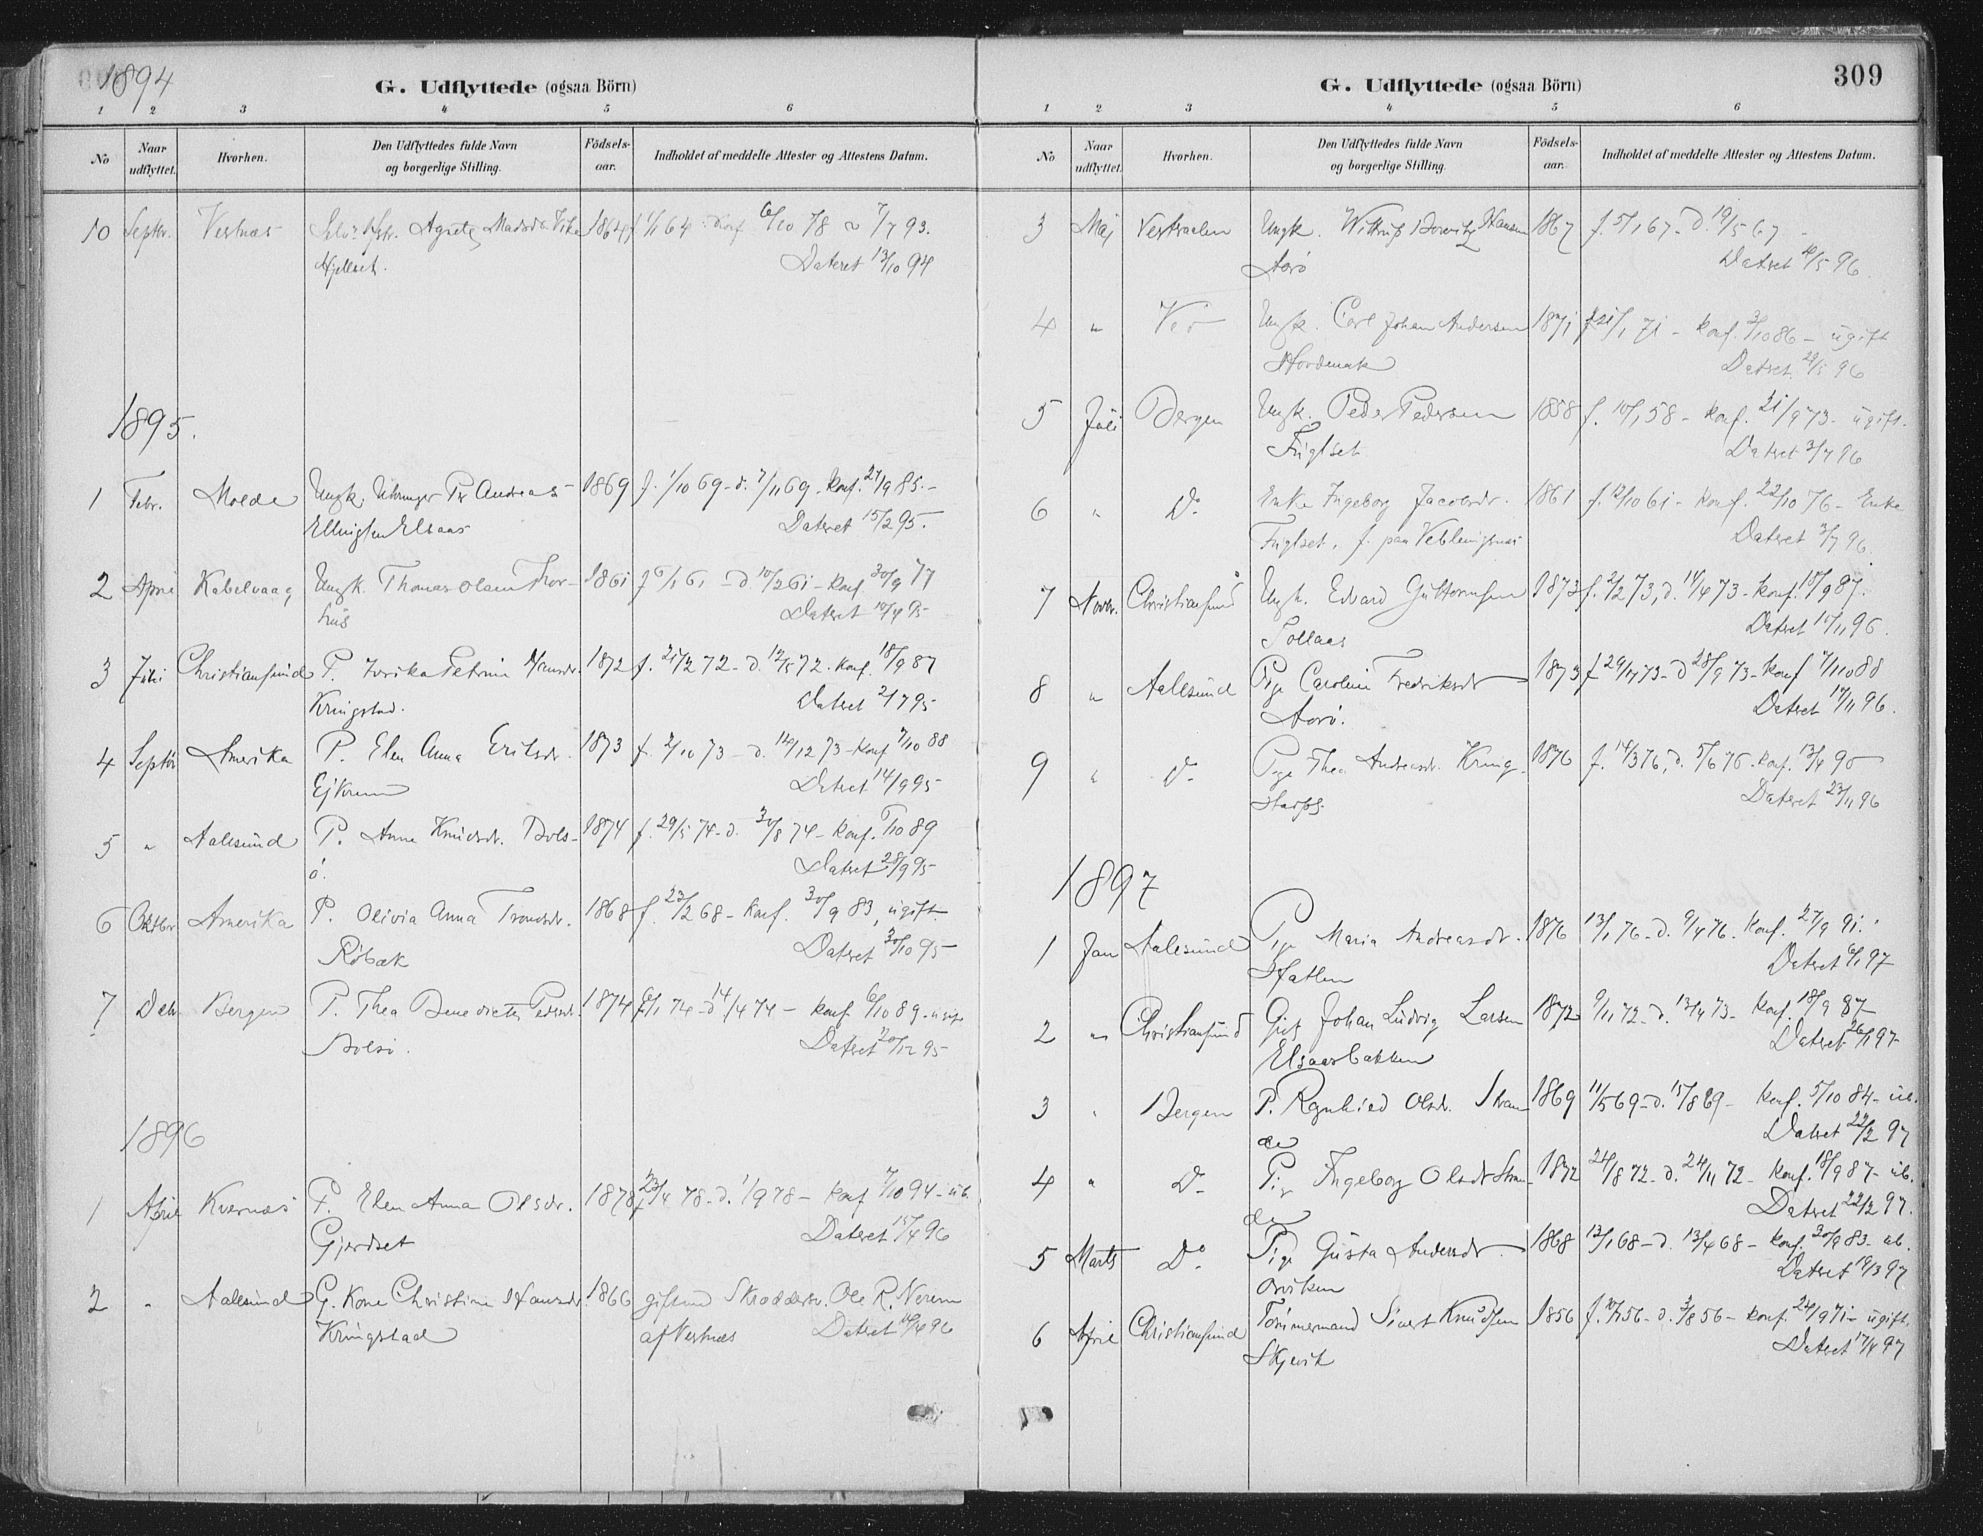 1894
G. Udflyttede (ogsaa Börn)
1 2 3 4 5 6
No Naar udflyttet. Hvorhen. Den Udflyttedes fulde Navn og borgerlige Stilling. Födsels-aar. Indholdet af meddelte Attester og Attestens Datum.
10 Septbr. Vestnæs Agnete Madsdr. 1864 f 1/1 64 konf 6/10 78 7/7 93.
Hjellset. Dateret 13/10 94
1895.
1 Febr. Molde Ungk. Per Andreas 1869 f. 1/10 69 - d. 7/11 69 - konf. 27/9 85. -
Ellingsen Elsaas Dateret 15/2 95.
2 April Kabelvaag Ungk. Thomas Olsen Thor- 1861 f 6/1 61 - d 10/2 61 - konf 30/9 77
hus Dateret 10/4 95
3 Juli Christiansund P. Petrine 1872 f. 21/2 72 - d. 12/5 72 - konf. 18/9 87
Kringstad. Dateret 2/7 95
4 Septbr Amerika P. Elen Anna Eriksdr. 1873 f. 2/10 73 - d. 14/12 73 - konf 7/10 88
Ejkrem Dateret 14/9 95
5 " Aalesund P. Anne Knudsdr. Bols- 1874 f. 29/5 74 - d. 30/8 74 - konf. 6/10 89
ö. Dateret 28/9 95
6 Oktbr Amerika P. Olivia Anna Trondsdr. 1868 f. 23/2 68 - konf. 30/9 83, ugift.
Röbæk Dateret 30/10 95
7 Debr Bergen P. Thea Benedicte Pedersdr. 1874 f. 6/1 74 - d 14/4 74 - konf 6/10 89 - ugift
Bolsö. Dateret 20/12 95
1896
1 April Kvernæs P. Elen Anna Olsdr. 1878 f 23/4 78 - d. 1/9 78 - konf 7/10 94 - ub.
Gjerdset Dateret 15/4 96
2 " Aalesund G. Kone Christine Hansdr. 1866 gift med Skrædder Ole R. Nerem
Kringstad af Vestnæs Dateret 16/4 96
G. Udflyttede (ogsaa Börn) 309
1 2 3 4 5 6
No Naar udflyttet. Hvorhen. Den Udflyttedes fulde Navn og borgerlige Stilling. Födsels-aar. Indholdet af meddelte Attester og Attestens Datum.
3 Maj Vestraalen Ungk. Hansen 1867 f. 5/1 67 - d. 19/5 67 -
Aarö Dateret 10/5 96.
4 " Veö Ungk. Carl Johan Andersen 1871 f 21/1 71 - konf. 3/10 86 - ugift
Dateret 29/5 96
5 Juli Bergen Ungk. Peder Pedersen 1858 f. 10/1 58 - konf. 21/9 73 - ugift.
Fuglset Dateret 3/7 96
6 " Do Enke Ingeborg Jacobsdr. 1861 f. 12/10 61 - konf. 22/10 76 - Enke
Fuglset, f. paa Veblungsnæs Dateret 3/7 96.
7 Novbr. Christiansund Ungk. Edvard Guttormsen 1873 f. 2/2 73, d. 14/4 73 - konf. 18/9 87.
Sollaas Dateret 10/11 96.
8 " Aalesund Pige Caroline Fredriksdr 1873 f 29/4 73 - d 28/9 73 - konf 7/10 88
Aarö. Dateret 17/11 96.
9 " Do Pige Thea Andreasdr. Kring- 1876 f. 14/3 76, d. 5/6 76 - konf. 13/4 90
Dateret 23/11 96
1897
1 Jan Aalesund Pige Maria Andreasdr. 1876 13/1 76 - d. 9/4 76 - konf. 27/9 91.
Hatlen Dateret 6/1 97
2 " Christiansund Gift Johan Ludvig Larsen 1872 9/11 72 - d. 13/4 73 - konf. 18/9 87
Elsaasbakken Dateret 26/1 97
3 " Bergen P. Ragnhild Olsdr. Stran- 1869 11/5 69 - d. 15/8 69 - konf. 5/10 84 - ub.
de Dateret 22/2 97
4 " Do Pige Ingeborg Olsdr Stran- 1872 24/8 72 - d. 24/11 72 - konf. 18/9 87 - ub.
de Dateret 22/2 97.
5 Marts Do Pige Gusta Andersdr. 1868 12/1 68 - d. 13/4 68 - konf. 30/9 83 - ub.
Orviken Dateret 19/3 97
6 April Christiansund Tömmermand Sivert Knudsen 1856 f. 10/7 56 - d. 3/8 56 - konf. 24/9 71 - ugift.
Skjevik Dateret 17/4 97